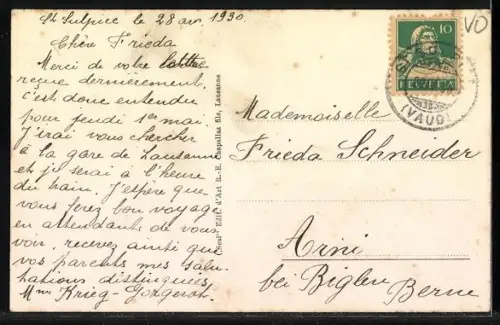 St Sulpice le 28 avr 1930.
Chère Frieda
Merci de votre lettre
reçue dernièrement.
C'est donc entendu
pour jeudi 1er mai.
J'irai vous chercher
à la gare de Lausanne
et je serai à l'heure
du train. J'espère que
vous ferez bon voyage
en attendant de vous
voir, recevez ainsi que
vos parents mes salu-
tations distinguées.
Mme Krieg-Gorgerat.
Edit. d'Art R.-E. Chapallaz fils, Lausanne
10
HELVETIA
(VAUD)
VD
Mademoiselle
Frieda Schneider
Arni
bei Biglen
Berne